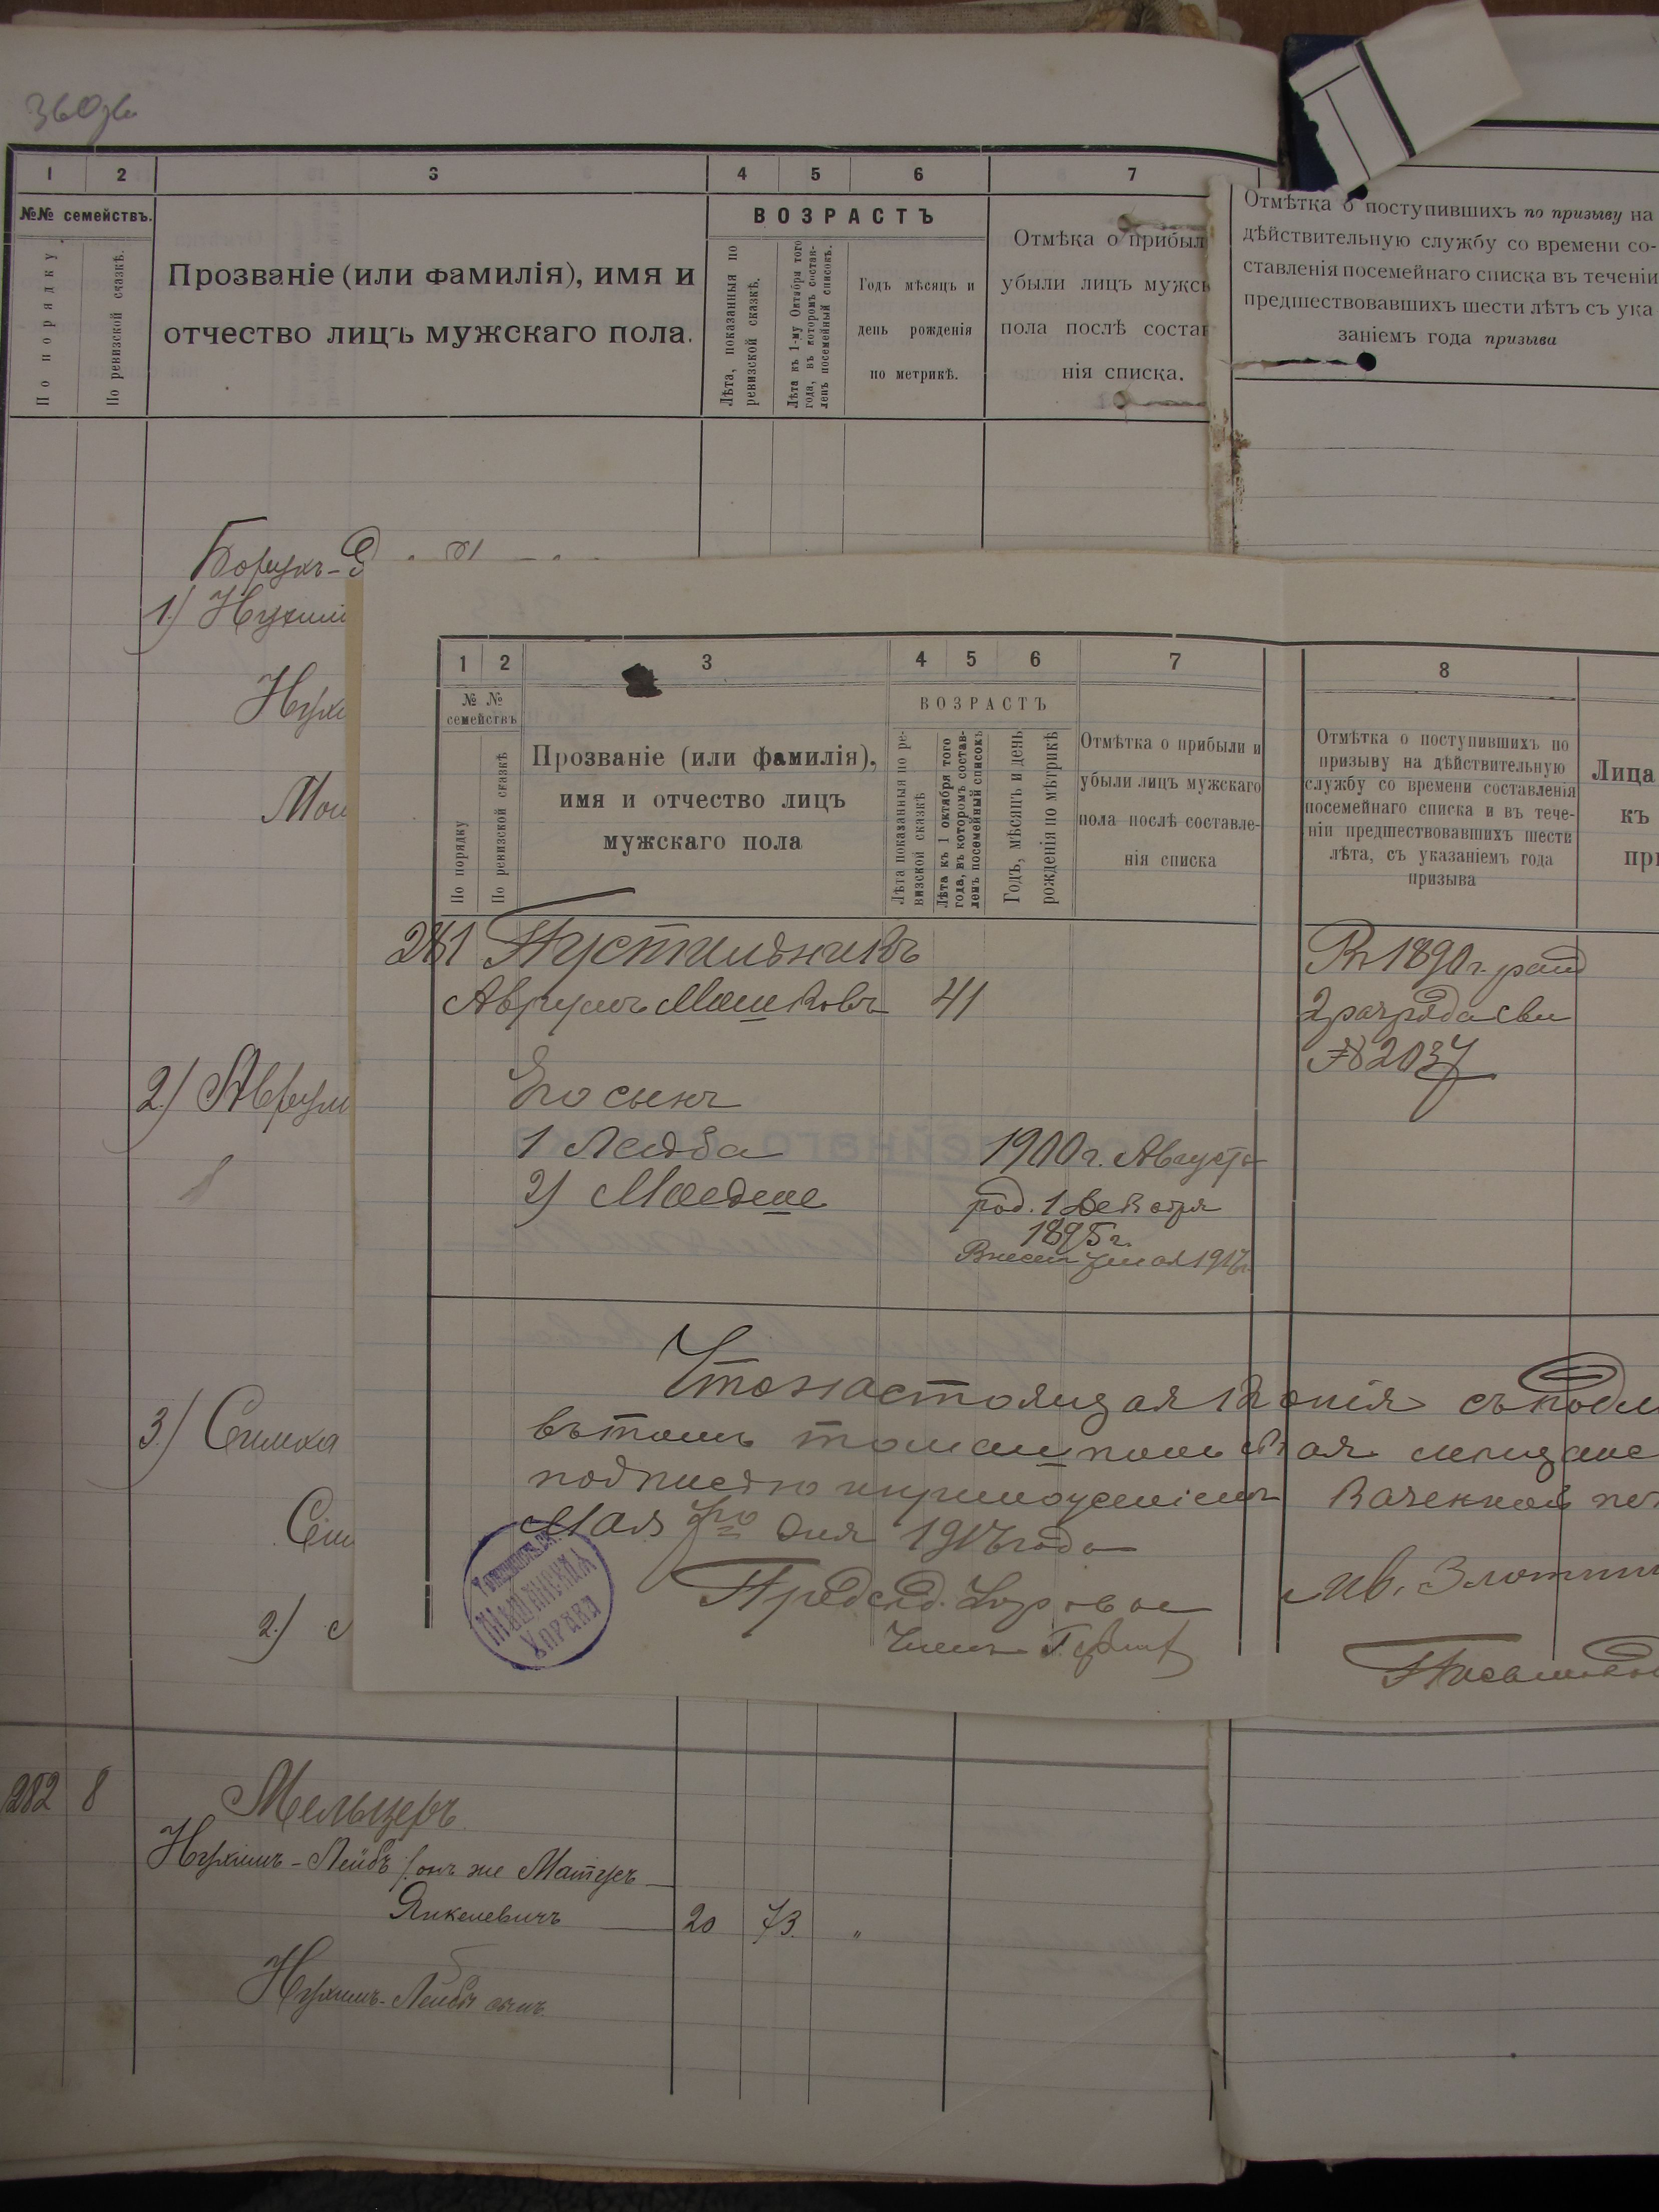 1
2
3
4
5
6
7
№№ семействъ.
По порядку
По ревизской сказкѣ.
Прозваніе (или фамилія), имя и
отчество лицъ мужскаго пола.
ВОЗРАСТЪ
Лѣта, показанныя по
ревизской сказкѣ.
Лѣта къ 1-му Октября того
года, въ которомъ состав-
ленъ посемейный списокъ.
Годъ мѣсяцъ и
день рожденія
по метрикѣ.
Отмѣка о прибыл
убыли лицъ мужск
пола послѣ состав
нія списка.
Отмѣтка о поступившихъ по призыву на
дѣйствительную службу со времени со-
ставленія посемейнаго списка въ теченіи
предшествовавшихъ шести лѣтъ съ ука
заніемъ года призыва
Борухъ-
1) Нухим
Нухи
2) Аврум
3) Симха
Сим
2)
1
2
3
4
5
6
7
8
№ №
семействъ
По порядку
По ревизской сказкѣ
Прозваніе (или фамилія),
имя и отчество лицъ
мужскаго пола
ВОЗРАСТЪ
Лѣта показанныя по ре-
визской сказкѣ
Лѣта къ 1 октября того
года, въ которомъ состав-
ленъ посемейный списокъ
Годъ, мѣсяцъ и день
рожденія по мѣтрикѣ
Отмѣтка о прибыли и
убыли лицъ мужскаго
пола послѣ составле-
нія списка
Отмѣтка о поступившихъ по
призыву на дѣйствительную
службу со времени составленія
посемейнаго списка и въ тече-
ніи предшествовавшихъ шести
лѣта, съ указаніемъ года
призыва
Лица
къ
при
281 Пустильникъ
Аврумъ Машковъ 41
Въ 1890 г. рат
2 разряда сви
№ 2037
Его сынъ
1 Лейба 1900 г. Августа
2) Мойше род. 1 Декабря
1895 г.
Внесен 7 мая
Что настоящая копія съ подл
въ томъ
подписью и приложеніемъ казенной печ
Мая 7го дня года
Предсѣд.
Членъ
МѢЩАНСКАЯ
УПРАВА
282 8 Мельцеръ
Нухимъ-Лейбъ (онъ же Матусъ
Янкелевичъ 20 73. „
Нухимъ-Лейбы сынъ.